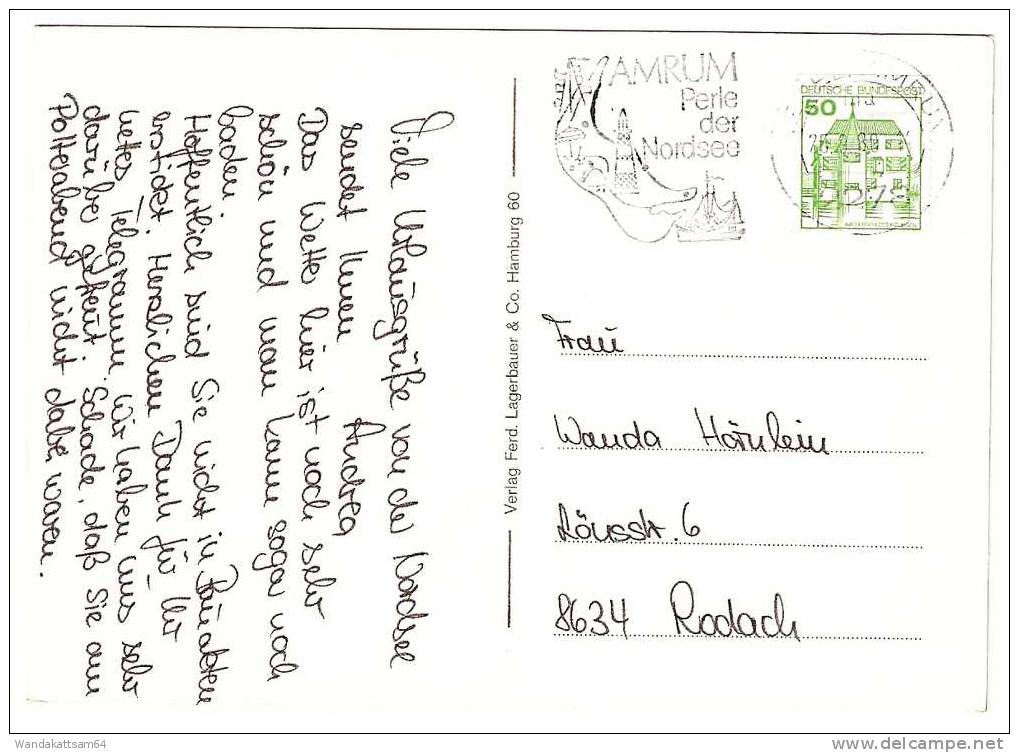 Viele Urlausgrüße von der Nordsee
sendet Ihnen Andrea
Das Wetter hier ist noch sehr
schön und man kann sogar noch
baden.
Hoffentlich sind Sie nicht in Päckchen
erstickt. Herzlichen Dank für Ihr
nettes Telegramm. Wir haben uns sehr
darüber gefreut. Schade, daß Sie am
Polterabend nicht dabei waren.
Verlag Ferd. Lagerbauer & Co. Hamburg 60
AMRUM
Perle
der
Nordsee
DEUTSCHE BUNDESPOST
50
Frau
Wanda Hörnlein
Lönsstr. 6
8634 Rodach
Wandakattsam64
delcampe.net